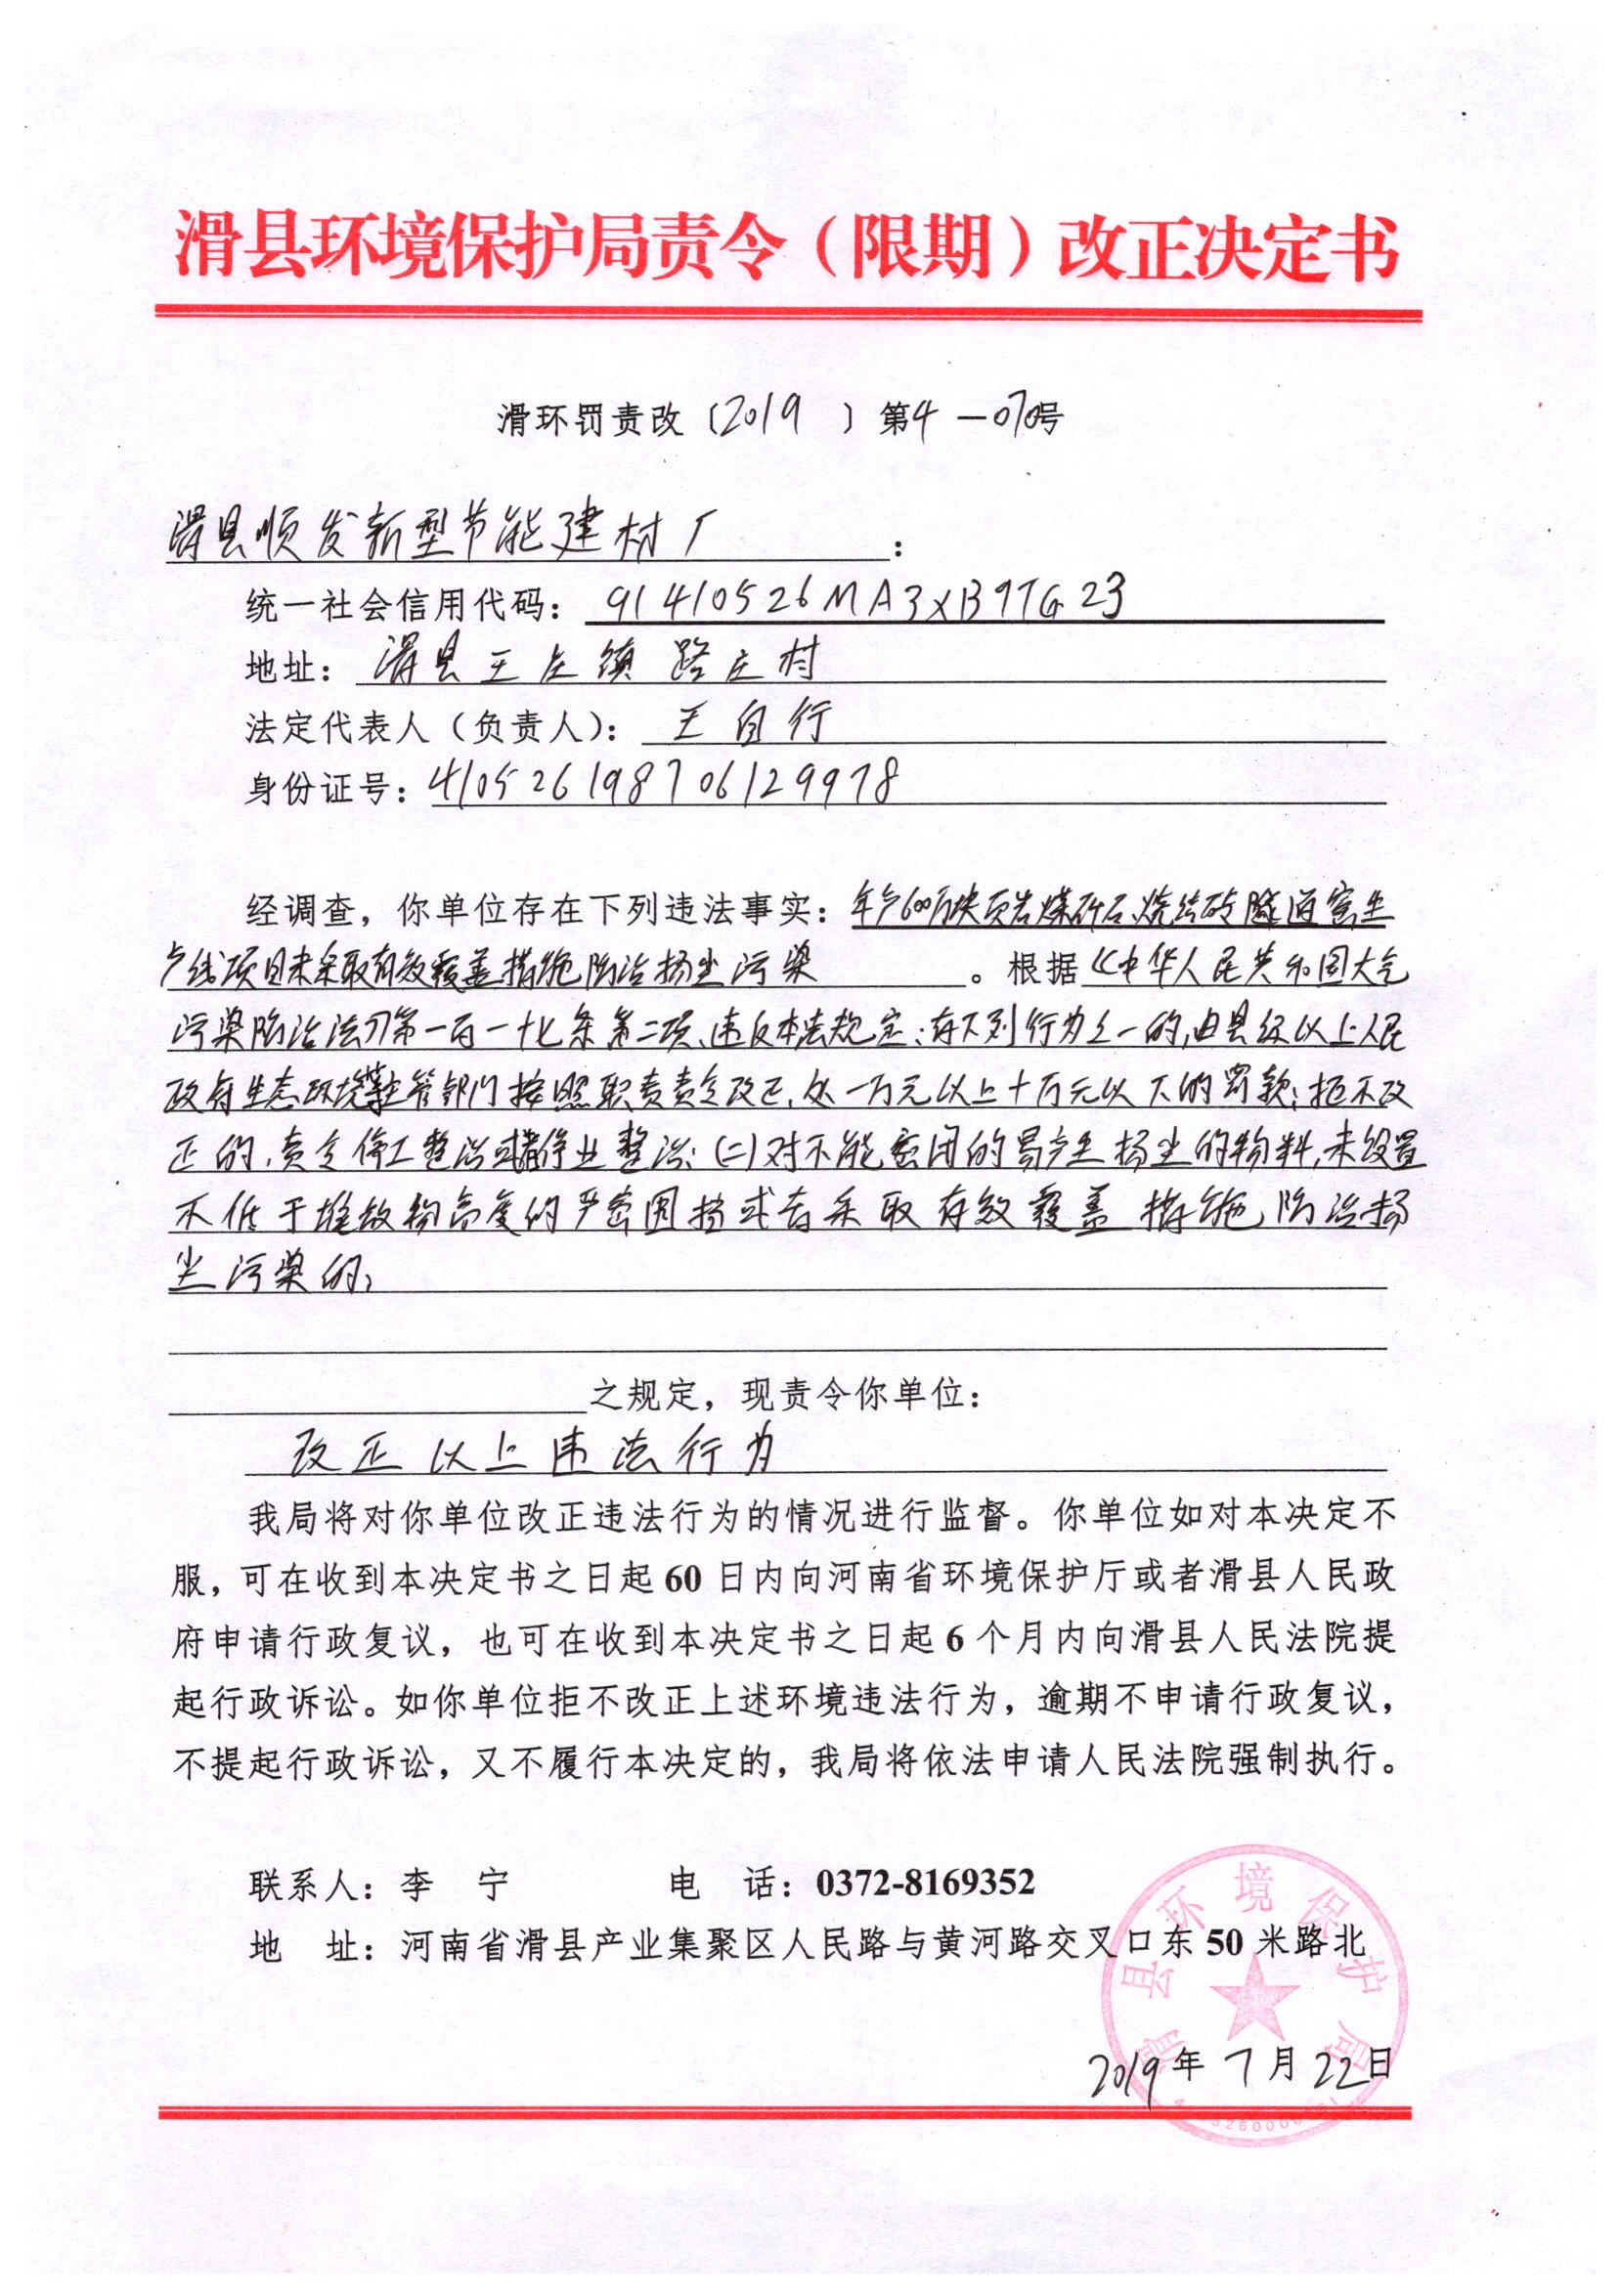 滑县环境保护局责令（限期）改正决定书
滑环罚责改〔2019 〕第4-070号
滑县顺发新型节能建材厂：
统一社会信用代码：91410526MA3XB9TG23
地址：滑县王庄镇路庄村
法定代表人（负责人）：王自行
身份证号：410526198706129978
经调查，你单位存在下列违法事实：年产600万块页岩煤矸石烧结砖隧道窑生
产线项目未采取有效覆盖措施防治扬尘污染。根据《中华人民共和国大气
污染防治法》第一百一十七条第二项、违反本法规定，有下列行为之一的，由县级以上人民
政府生态环境等主管部门按照职责责令改正，处一万元以上十万元以下的罚款；拒不改
正的，责令停工整治或者停业整治：（二）对不能密闭的易产生扬尘的物料，未设置
不低于堆放物高度的严密围挡或者采取有效覆盖措施防治扬
尘污染的；
之规定，现责令你单位：
改正以上违法行为
我局将对你单位改正违法行为的情况进行监督。你单位如对本决定不
服，可在收到本决定书之日起 60 日内向河南省环境保护厅或者滑县人民政
府申请行政复议，也可在收到本决定书之日起 6 个月内向滑县人民法院提
起行政诉讼。如你单位拒不改正上述环境违法行为，逾期不申请行政复议，
不提起行政诉讼，又不履行本决定的，我局将依法申请人民法院强制执行。
联系人：李 宁 电 话：0372-8169352
地 址：河南省滑县产业集聚区人民路与黄河路交叉口东 50 米路北
滑县环境保护局
2019年7月22日